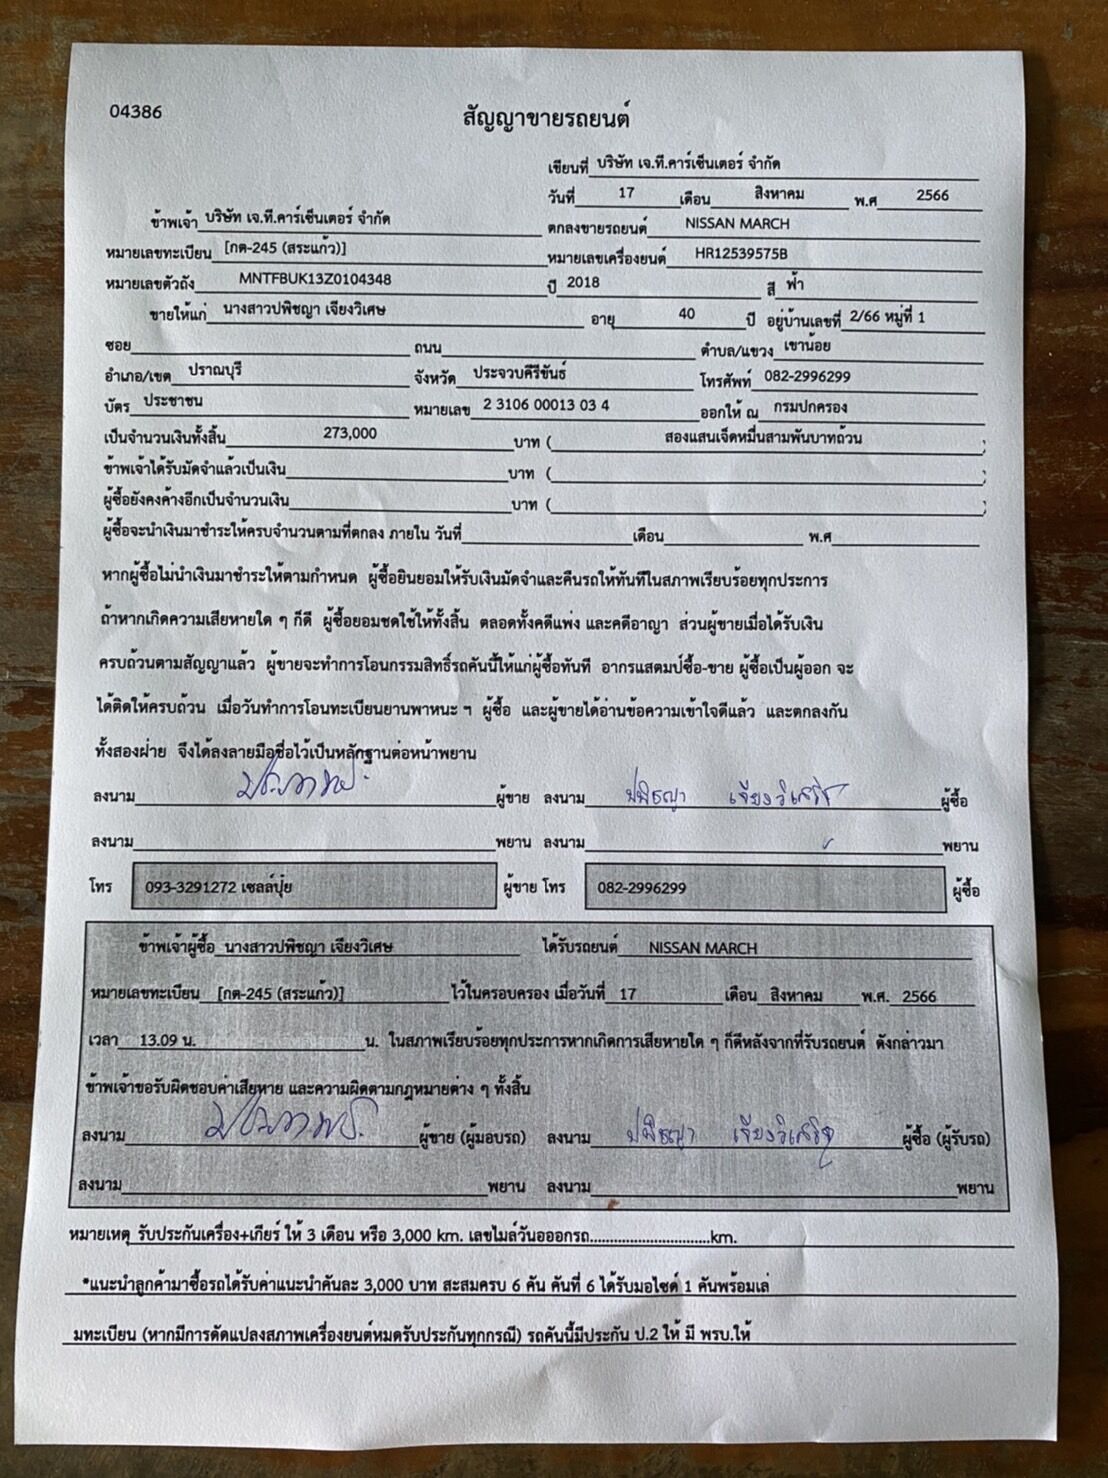 04386
สัญญาขายรถยนต์
เขียนที่ บริษัท เจ.ที.คาร์เซ็นเตอร์ จำกัด
วันที่ 17 เดือน สิงหาคม พ.ศ 2566
ข้าพเจ้า บริษัท เจ.ที.คาร์เซ็นเตอร์ จำกัด ตกลงขายรถยนต์ NISSAN MARCH
หมายเลขทะเบียน [กต-245 (สระแก้ว)] หมายเลขเครื่องยนต์ HR12539575B
หมายเลขตัวถัง MNTFBUK13Z0104348 ปี 2018 สี ฟ้า
ขายให้แก่ นางสาวปพิชญา เจียงวิเศษ อายุ 40 ปี อยู่บ้านเลขที่ 2/66 หมู่ที่ 1
ซอย ถนน ตำบล/แขวง เขาน้อย
อำเภอ/เขต ปราณบุรี จังหวัด ประจวบคีรีขันธ์ โทรศัพท์ 082-2996299
บัตร ประชาชน หมายเลข 2 3106 00013 03 4 ออกให้ ณ กรมปกครอง
เป็นจำนวนเงินทั้งสิ้น 273,000 บาท ( สองแสนเจ็ดหมื่นสามพันบาทถ้วน )
ข้าพเจ้าได้รับมัดจำแล้วเป็นเงิน บาท ( )
ผู้ซื้อยังคงค้างอีกเป็นจำนวนเงิน บาท ( )
ผู้ซื้อจะนำเงินมาชำระให้ครบจำนวนตามที่ตกลง ภายใน วันที่ เดือน พ.ศ
หากผู้ซื้อไม่นำเงินมาชำระให้ตามกำหนด ผู้ซื้อยินยอมให้รับเงินมัดจำและคืนรถให้ทันทีในสภาพเรียบร้อยทุกประการ
ถ้าหากเกิดความเสียหายใด ๆ ก็ดี ผู้ซื้อยอมชดใช้ให้ทั้งสิ้น ตลอดทั้งคดีแพ่ง และคดีอาญา ส่วนผู้ขายเมื่อได้รับเงิน
ครบถ้วนตามสัญญาแล้ว ผู้ขายจะทำการโอนกรรมสิทธิ์รถคันนี้ให้แก่ผู้ซื้อทันที อากรแสตมป์ซื้อ-ขาย ผู้ซื้อเป็นผู้ออก จะ
ได้ติดให้ครบถ้วน เมื่อวันทำการโอนทะเบียนยานพาหนะ ฯ ผู้ซื้อ และผู้ขายได้อ่านข้อความเข้าใจดีแล้ว และตกลงกัน
ทั้งสองฝ่าย จึงได้ลงลายมือชื่อไว้เป็นหลักฐานต่อหน้าพยาน
ลงนาม ผู้ขาย ลงนาม ปพิชญา เจียงวิเศษ ผู้ซื้อ
ลงนาม พยาน ลงนาม พยาน
โทร 093-3291272 เซลล์ปุ๋ย ผู้ขาย โทร 082-2996299 ผู้ซื้อ
ข้าพเจ้าผู้ซื้อ นางสาวปพิชญา เจียงวิเศษ ได้รับรถยนต์ NISSAN MARCH
หมายเลขทะเบียน [กต-245 (สระแก้ว)] ไว้ในครอบครอง เมื่อวันที่ 17 เดือน สิงหาคม พ.ศ. 2566
เวลา 13.09 น. น. ในสภาพเรียบร้อยทุกประการหากเกิดการเสียหายใด ๆ ก็ดีหลังจากที่รับรถยนต์ ดังกล่าวมา
ข้าพเจ้าขอรับผิดชอบค่าเสียหาย และความผิดตามกฎหมายต่าง ๆ ทั้งสิ้น
ลงนาม ผู้ขาย (ผู้มอบรถ) ลงนาม ปพิชญา เจียงวิเศษ ผู้ซื้อ (ผู้รับรถ)
ลงนาม พยาน ลงนาม พยาน
หมายเหตุ รับประกันเครื่อง+เกียร์ ให้ 3 เดือน หรือ 3,000 km. เลขไมล์วันอออกรถ..............................km.
*แนะนำลูกค้ามาซื้อรถได้รับค่าแนะนำคันละ 3,000 บาท สะสมครบ 6 คัน คันที่ 6 ได้รับมอไซด์ 1 คันพร้อมเล่
มทะเบียน (หากมีการดัดแปลงสภาพเครื่องยนต์หมดรับประกันทุกกรณี) รถคันนี้มีประกัน ป.2 ให้ มี พรบ.ให้